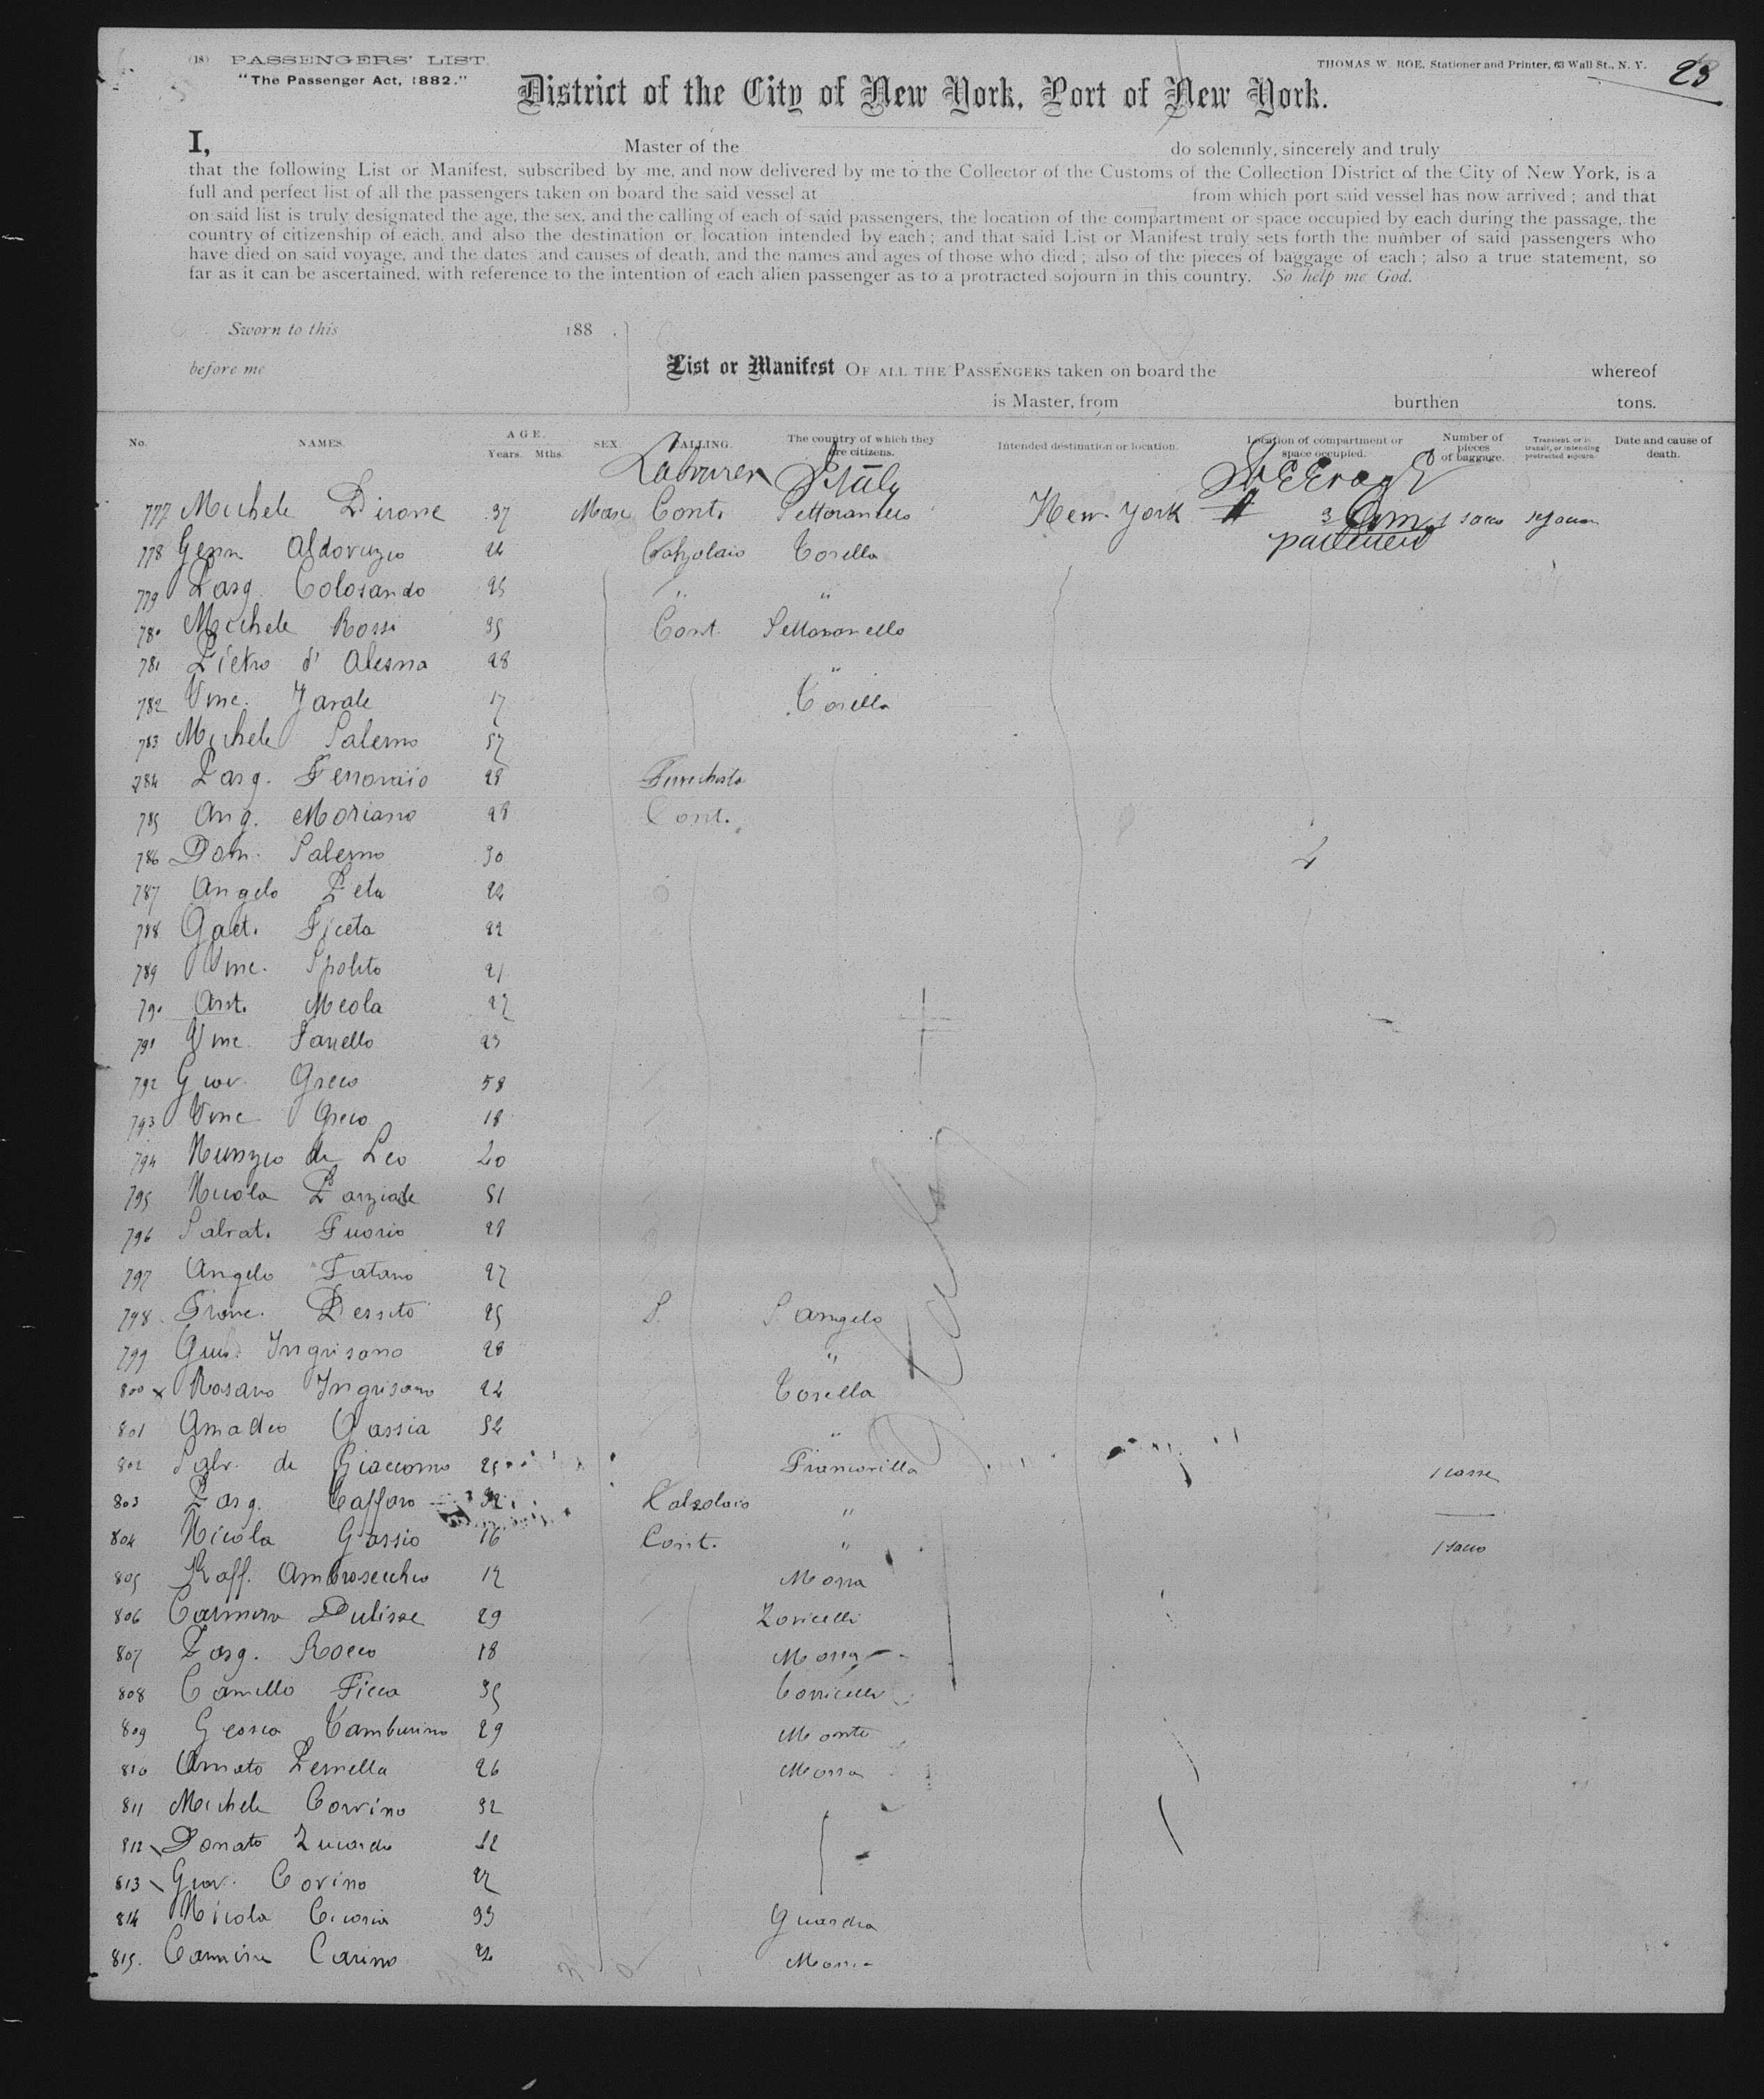 (18) PASSENGERS' LIST.
"The Passenger Act, 1882."
THOMAS W. ROE, Stationer and Printer, 63 Wall St., N. Y.
23
District of the City of New York, Port of New York.
I, Master of the do solemnly, sincerely and truly
that the following List or Manifest, subscribed by me, and now delivered by me to the Collector of the Customs of the Collection District of the City of New York, is a
full and perfect list of all the passengers taken on board the said vessel at from which port said vessel has now arrived; and that
on said list is truly designated the age, the sex, and the calling of each of said passengers, the location of the compartment or space occupied by each during the passage, the
country of citizenship of each, and also the destination or location intended by each; and that said List or Manifest truly sets forth the number of said passengers who
have died on said voyage, and the dates and causes of death, and the names and ages of those who died; also of the pieces of baggage of each; also a true statement, so
far as it can be ascertained, with reference to the intention of each alien passenger as to a protracted sojourn in this country. So help me God.
Sworn to this 188 .
before me
List or Manifest OF ALL THE PASSENGERS taken on board the whereof
is Master, from burthen tons.
No. NAMES. AGE. Years. Mths. SEX. CALLING. The country of which they are citizens. Intended destination or location. Location of compartment or space occupied. Number of pieces of baggage. Transient, or in transit, or intending protracted sojourn. Date and cause of death.
Labourer Italy Steerage
777 Michele Dirone 37 Masc Cont. New-York 3 1 sacco
778 Genn Aldoruzio 24 Calzolaio Torella
779 Pasq. Colosando 25 " "
780 Michele Rossi 35 Cont.
781 Pietro d' Alesna 28 "
782 Vinc. 17 Torella
783 Michele Salerno 57
784 Pasq. Ferronaio 28
785 Ang. Moriano 28 Cont.
786 Dom. Salerno 30
787 Angelo Peta 22
788 Gaet. Ficeta 22
789 Vinc. Spolito 21
790 Ant. Meola 27
791 Vinc. 23
792 Giov. Greco 58
793 Vinc Greco 18
794 Nunzio de Leo 20
795 Nicola Parziale 51
796 Salvat. Fuorio 28
797 Angelo Fatano 27
798 Franc. Dessito 25 S. S Angelo
799 Gius. Ingrisano 28 "
800 x Rosario Ingrisano 22 Torella
801 Amadeo Gassia 32 "
Italy
802 Salv. de Giacomo 25 1 casse
803 Pasq. Caffaro 32 Calzolaio "
804 Nicola Gassio 16 Cont. " 1 sacco
805 Raff. Ambrosecchio 17 Morra
806 Dulisse 29
807 Pasq. Rocco 18 Morra
808 Camillo Ficca 35
809 Tamburino 29 Monte
810 Amato Pernella 26 Morra
811 Michele Corvino 32
812 Donato
813 Giov. Covino 27
814 Nicola Cicoria 33 Guardia
815. Carmine Carino 22 Morra